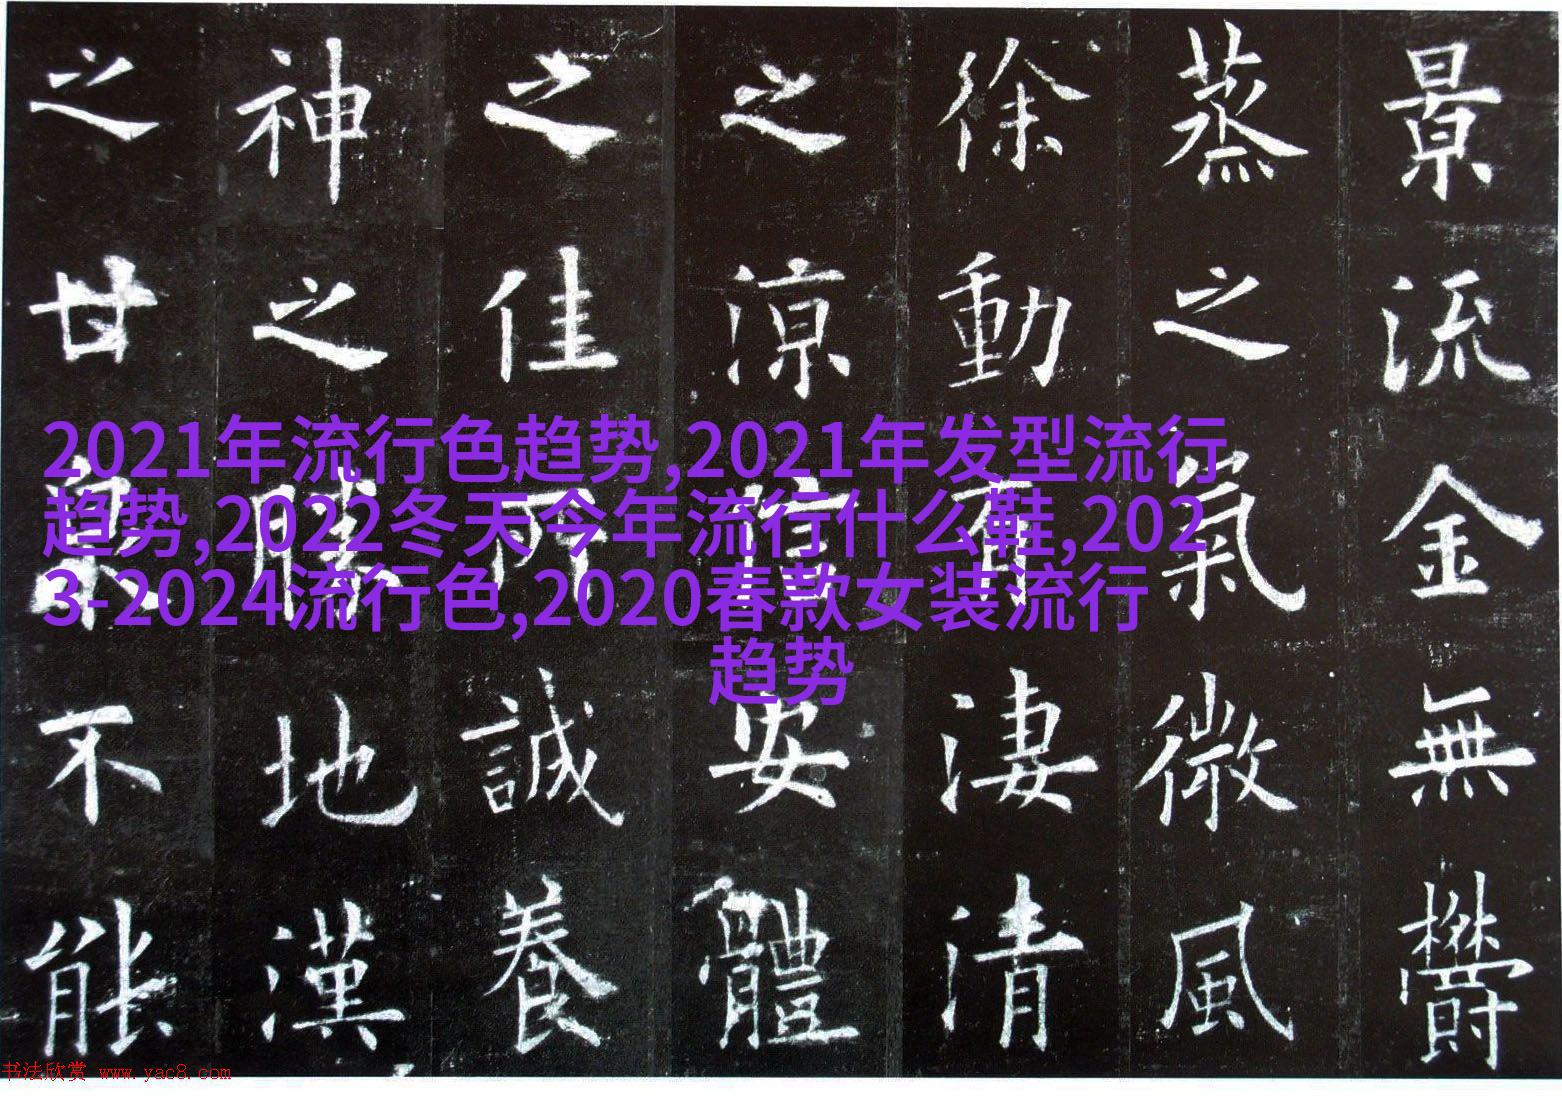 景流金無欝
蒸之氣微風
徐動有淒清
之涼信安體
之佳所誠養
神之勝地漢
之甘泉不能
2021年流行色趋势,2021年发型流行
趋势,2022冬天今年流行什么鞋,202
3-2024流行色,2020春款女装流行
趋势
书法欣赏 www.yac8.com